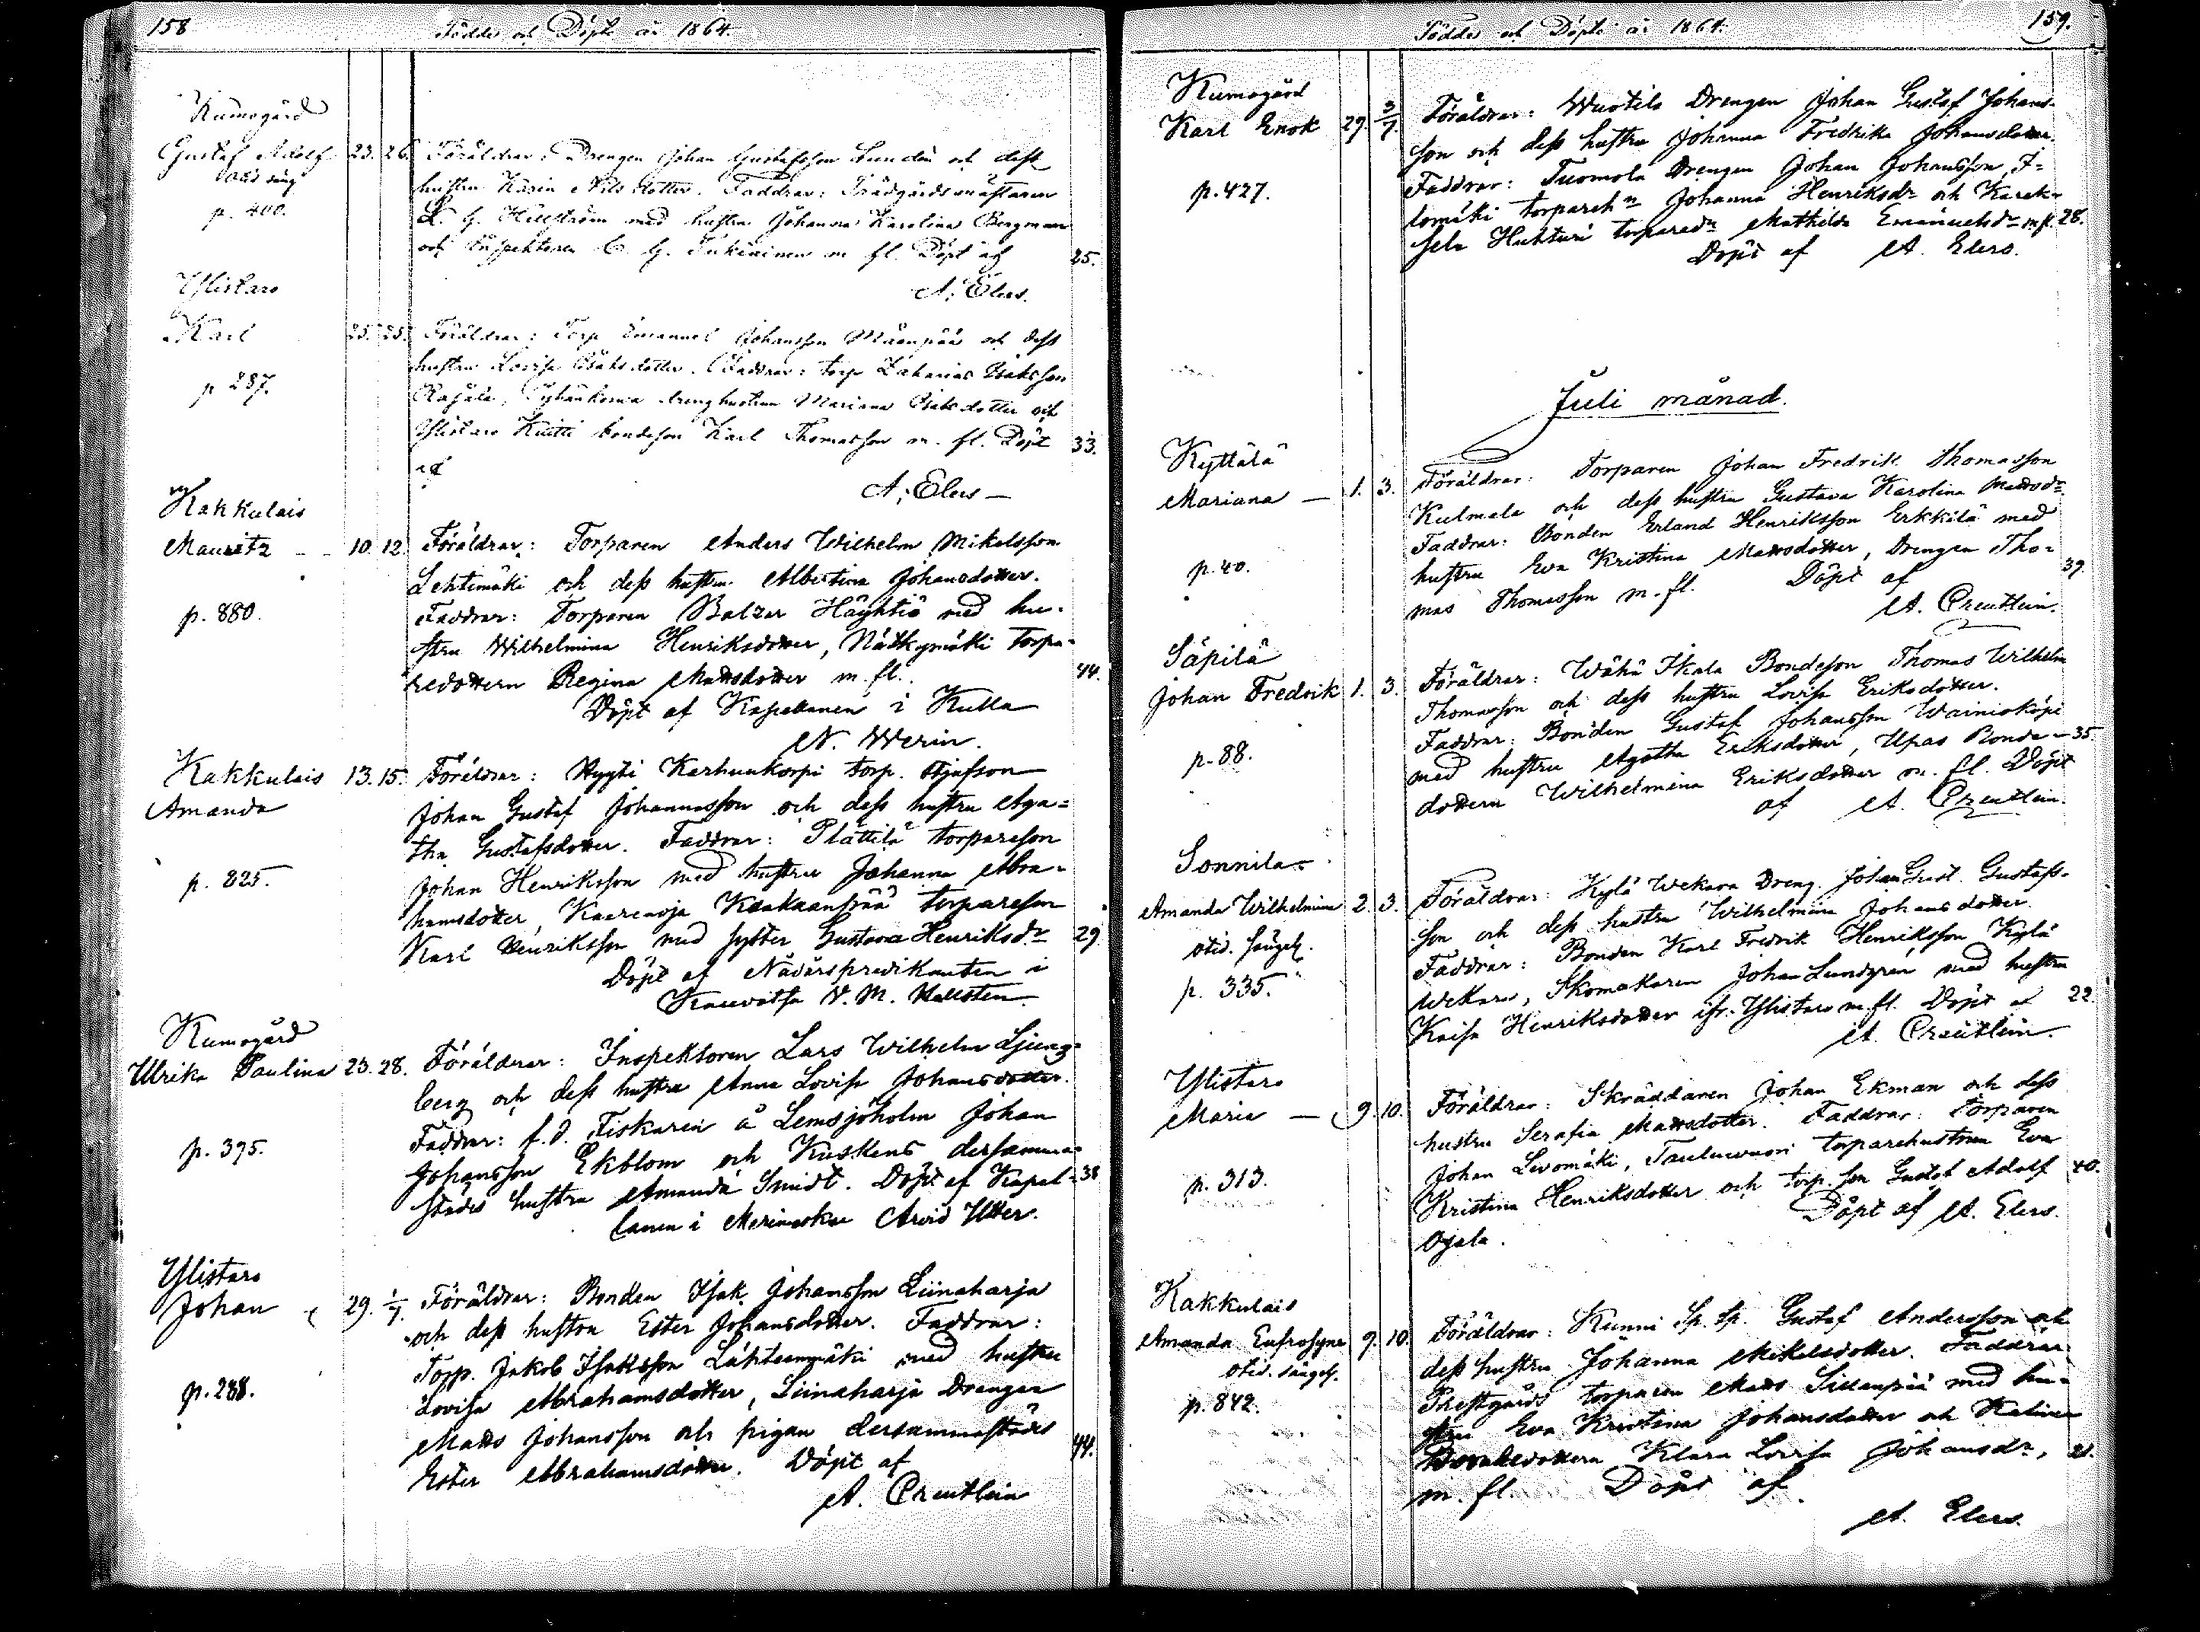 158
Födde och Döpte år 1864.
Kumogård
Gustaf Adolf 23. 26. Föräldrar: Drengen Johan Gustafsson Lundén och dess
p. 400.
hustru Karin Nilsdotter. Faddrar: Trädgårdsmästaren
med hustru Johanna Karolina Bergman
och Inspektoren C. G. m fl. Döpt af 25.
A. Elers.
Ylistaro
Karl 25. 25. Föräldrar: Torp Emanuel Johansson Mäenpää och dess
p 287.
hustru Lovisa Isaksdotter. Faddrar: Torp Zakarias Isaksson
Rajala, drenghustrun Mariana Isaksdotter och
Ylistaro Kuitti bondeson Karl Thomasson m. fl. Döpt 33.
af
A. Elers —
Kakkulais
Mauritz - - 10. 12. Föräldrar: Torparen Anders Wilhelm Mikelsson
Lehtimäki och dess hustru Albertina Johansdotter.
p. 880.
Faddrar: Torparen Balzar Häyhtiö med hu-
stru Wilhelmina Henriksdotter, Nätkymäki Torpa-
redottern Regina Mattsdotter m. fl. 44.
Döpt af Kapellanen i Kulla
N. Werin.
Kakkulais 13. 15. Föräldrar: Karhunkorpi torp.
Amanda
Johan Gustaf Johannesson och dess hustru Aga-
tha Gustafsdotter. Faddrar: Plättilä torpareson
p. 825.
Johan Henriksson med hustru Johanna Abra-
hamsdotter, Kaarenoja torpareson
Karl Henriksson med syster Gustava Henriksdr 29
Döpt af Nådårspredikanten i
Kauvatsa V. M. Hallsten.
Kumogård
Ulrika Paulina 23. 28. Föräldrar: Inspektoren Lars Wilhelm Ljung-
berg och dess hustru Anna Lovisa Johansdotter.
Faddrar: f. d. Fiskaren å Lemsjöholm Johan
p. 395.
Johansson Ekblom och Kuskens dersamma-
städes hustru Amanda Smidt. Döpt af Kapel- 38
lanen i Merimasku Arvid Utter.
Ylistaro
Johan 29. 1/7. Föräldrar: Bonden Isak Johansson Liinaharja
och dess hustru Ester Johansdotter. Faddrar:
Torp. Jakob Isaksson Lähteenmäki med hustru
p. 288.
Lovisa Abrahamsdotter, Liinaharja Drengen
Matts Johansson och pigan dersammastädes
Ester Abrahamsdotter. Döpt af 44.
A. Creutlein
Födde och Döpte år 1864.
159.
Kumogård
Karl Enok 29. 3/7. Föräldrar: Wuotila Drengen Johan Gustaf Johans-
son och dess hustru Johanna Fredrika Johansdotter.
p. 427.
Faddrar: Tuomola Drengen Johan Johansson,
lomäki Johanna Henriksdr och
Huhturi torparedr Mathilda Emanuelsdr m. fl. 28.
Döpt af A. Elers.
Juli månad.
Kyttälä
Mariana — 1. 3. Föräldrar: Torparen Johan Fredrik Thomasson
Kulmala och dess hustru Gustava Karolina Mattsdr
p. 40.
Faddrar: Bonden Erland Henriksson Erkkilä med
hustru Eva Kristina Mattsdotter, Drengen Tho- 39.
mas Thomasson m. fl. Döpt af
A. Creutlein.
Säpilä
Johan Fredrik 1. 3. Föräldrar: Wähä Skala Bondeson Thomas Wilhelm
Thomasson och dess hustru Lovisa Eriksdotter.
p. 88.
Faddrar: Bonden Gustaf Johansson
med hustru Agatha Eriksdotter, Upas Bonde- 35
dottern Wilhelmina Eriksdotter m. fl. Döpt
af A. Creutlein.
Sonnila
Amanda Wilhelmina 2. 3. Föräldrar: Kylä Wekara Dreng. Johan Gust. Gustafs-
son och dess hustru Wilhelmina Johansdotter.
p. 335.
Faddrar: Bonden Karl Fredrik Henriksson Kylä
Wekara, Skomakaren Johan Lundgrén med hustru
Kaisa Henriksdotter ifr. Ylistaro m. fl. Döpt af 22.
A. Creutlein.
Ylistaro
Maria — 9. 10. Föräldrar: Skräddaren Johan Ekman och dess
hustru Serafia Mattsdotter. Faddrar: Torparen
Johan Levomäki, Tauluvuori torparehustrun Eva
p. 313.
Kristina Henriksdotter och torp. son Gustaf Adolf 40.
Ojala.
Döpt af A. Elers.
Kakkulais
Amanda Eufrosyne 9. 10. Föräldrar: Kunni Sp. tp. Gustaf Andersson och
dess hustru Johanna Mikelsdotter. Faddrar:
p. 842.
Prestgårds torparen Matts Sillanpää med hu-
stru Eva Kristina Johansdotter och
Bondedottern Klara Lovisa Johansdr, 21.
m. fl. Döpt af
A. Elers.